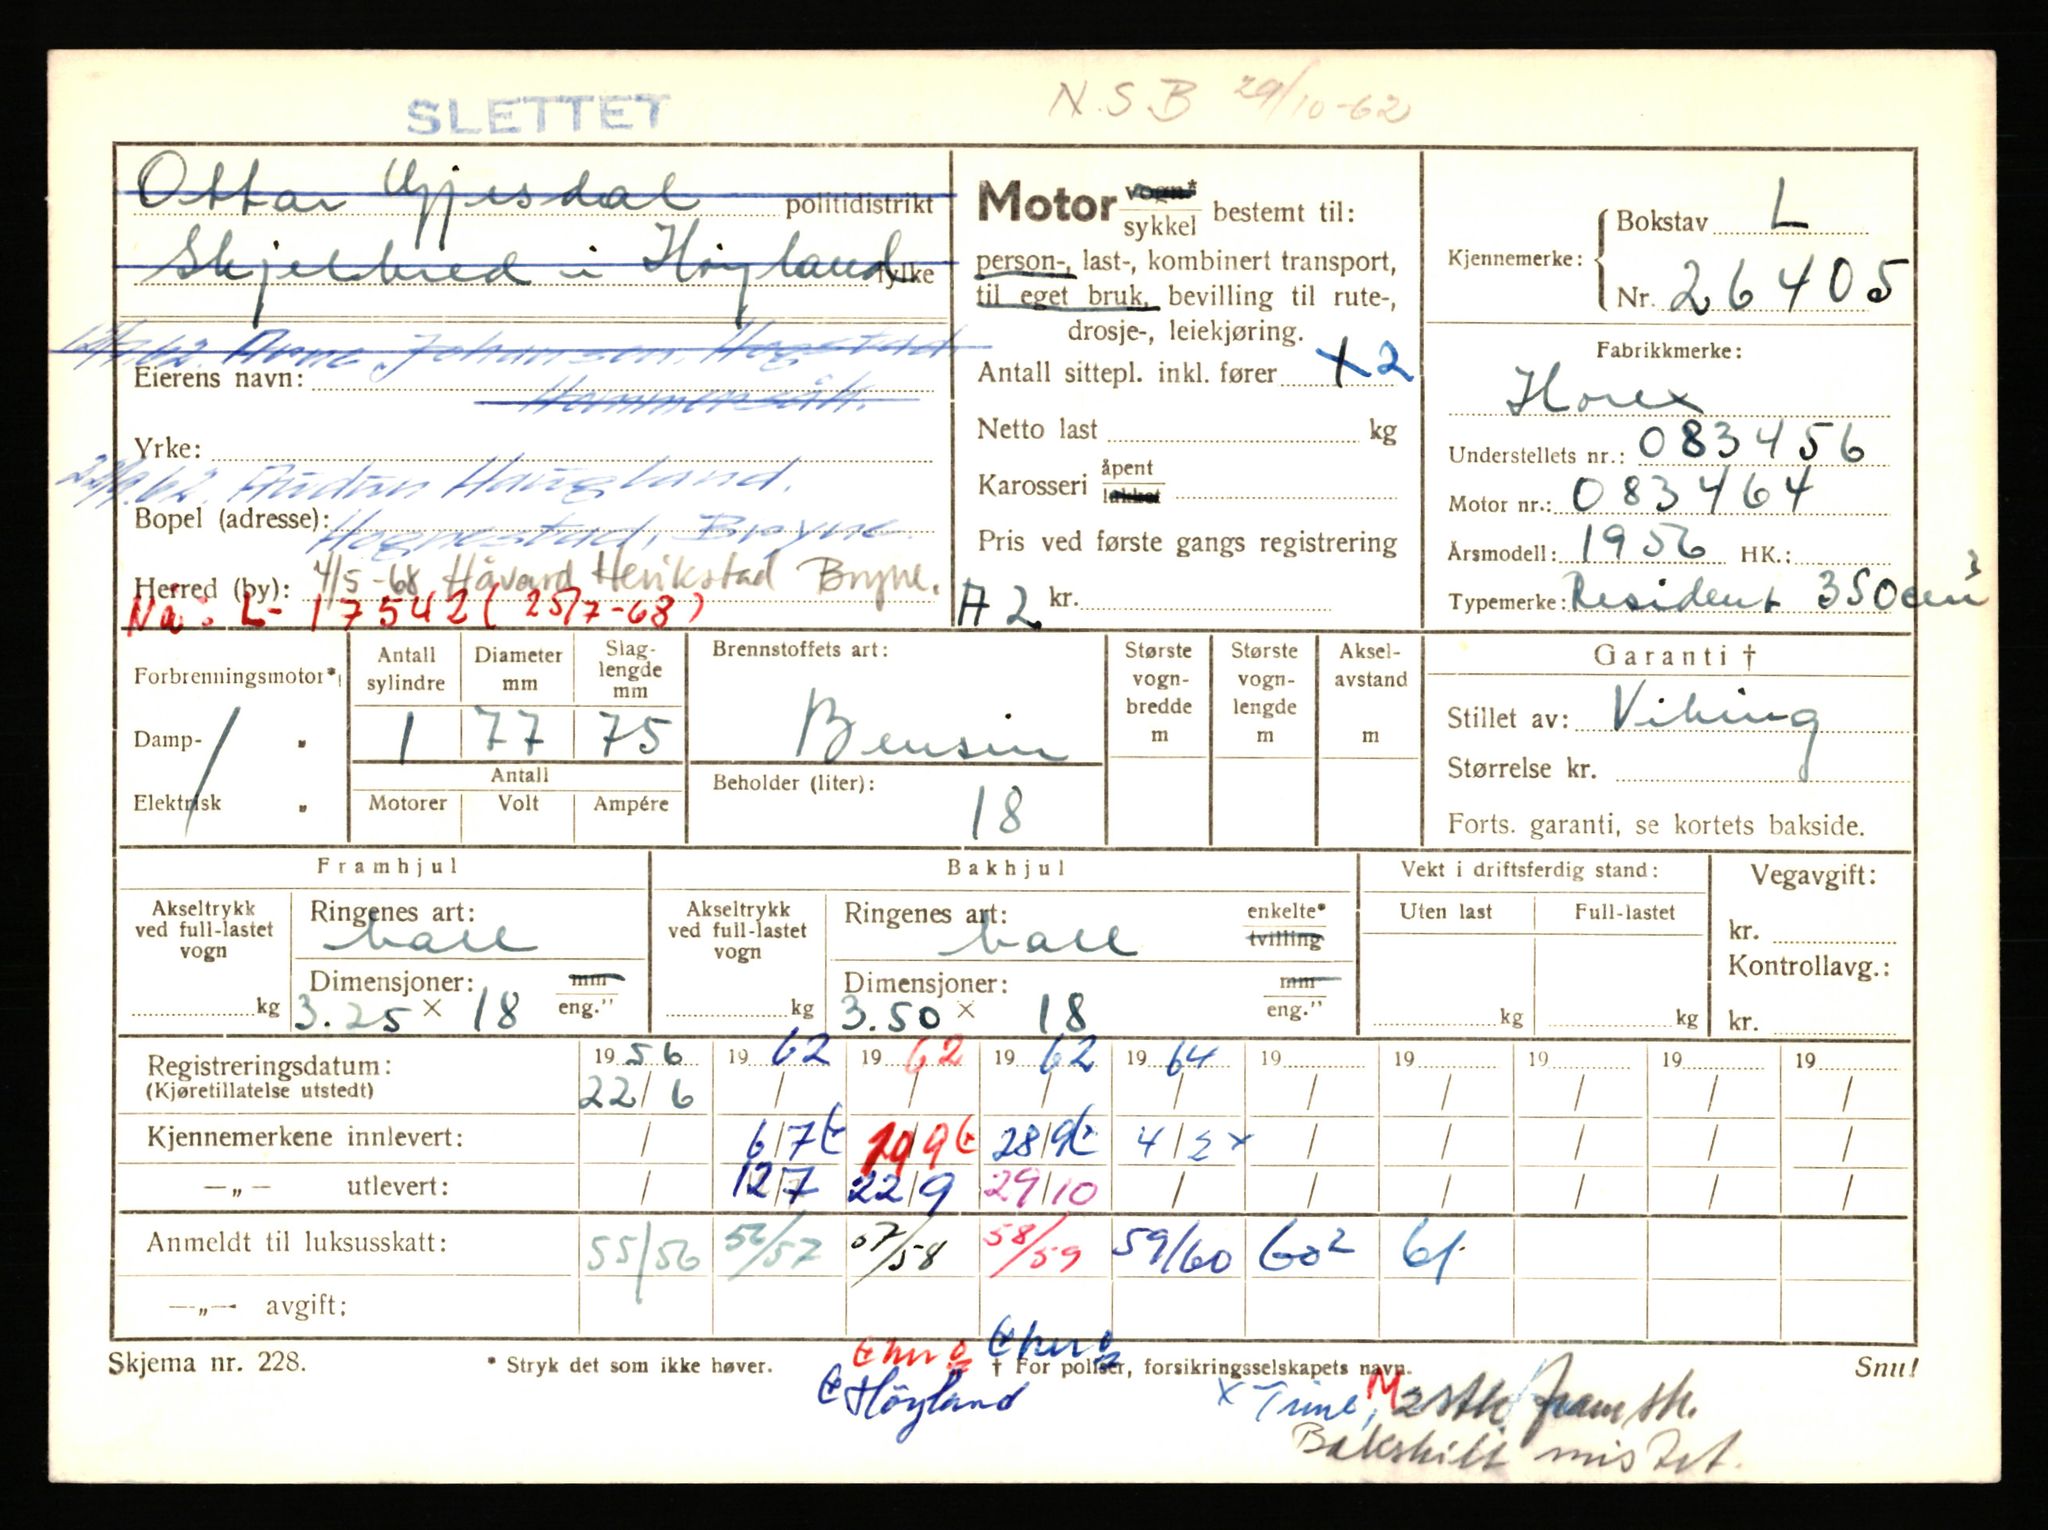 SLETTET
N.S.B 29/10-62
Ottar Gjesdal politidistrikt
Skjelbred i Høyland fylke
12/7.62. Arne Johansen, Hogstad
Eierens navn:
Hommersåk.
Yrke:
22/9.62. Audun Haugland.
Bopel (adresse): Hognestad, Bryne.
Herred (by): 4/5-68 Håvard Herikstad Bryne.
Nå: L-17542 (25/7-68)
Motor vogn*
sykkel bestemt til:
person-, last-, kombinert transport,
til eget bruk, bevilling til rute-,
drosje-, leiekjøring.
Antall sittepl. inkl. fører 2
Netto last kg
Karosseri åpent
lukket
Pris ved første gangs registrering
A2 kr.
Kjennemerke: Bokstav L
Nr. 26405
Fabrikkmerke:
Horex
Understellets nr.: 083456
Motor nr.: 083464
Årsmodell: 1956 HK.:
Typemerke: Resident 350 cm³
Forbrenningsmotor*
Damp- „
Elektrisk „
Antall sylindre
Diameter mm
Slaglengde mm
1 77 75
Antall
Motorer Volt Ampére
Brennstoffets art:
Bensin
Beholder (liter):
18
Største vognbredde m
Største vognlengde m
Akselavstand m
Garanti †
Stillet av: Viking
Størrelse kr.
Forts. garanti, se kortets bakside.
Framhjul
Akseltrykk ved full-lastet vogn
kg
Ringenes art:
ball
Dimensjoner: mm
3.25 × 18 eng.”
Bakhjul
Akseltrykk ved full-lastet vogn
kg
Ringenes art: enkelte*
ball tvilling
Dimensjoner: mm
3.50 × 18 eng.”
Vekt i driftsferdig stand:
Uten last Full-lastet
kg kg
Vegavgift:
kr.
Kontrollavg.:
kr.
Registreringsdatum: 1956 1962 1962 1962 1964 19 19 19 19 19
(Kjøretillatelse utstedt) 22/6 / / / / / / / / /
Kjennemerkene innlevert: / 6/7 19/9 28/9 4/2 x / / / / /
—„— utlevert: / 12/7 22/9 29/10 / / / / / /
Anmeldt til luksusskatt: 55/56 56/57 57/58 58/59 59/60 60² 61.
—„— avgift:
Skjema nr. 228. * Stryk det som ikke høver. † For poliser, forsikringsselskapets navn. Snu!
Høyland
x Time, M 2 stk framsk.
Bakskilt mistet.